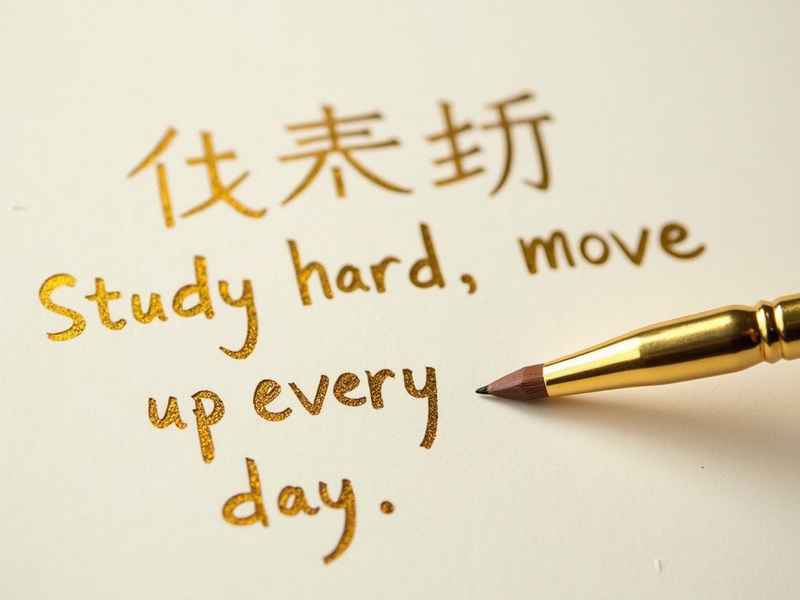 Study hard, move
up every
day.